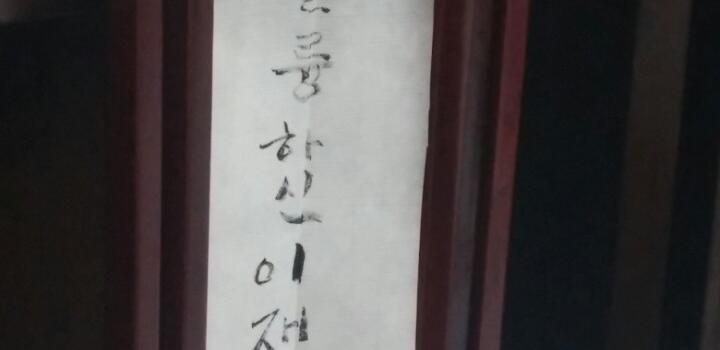 륭하신 이재